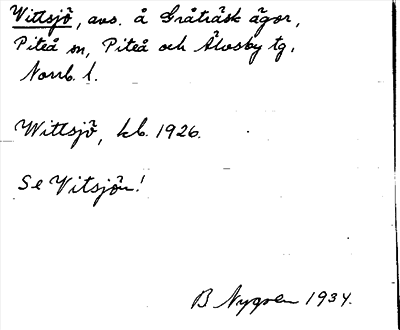 Wittsjö, avs. å Gråträsk ägor,
Piteå sn, Piteå och Älvsby tg,
Norrb. l.
Wittsjö, kb. 1926.
Se Vitsjön!
B Nygren 1934.